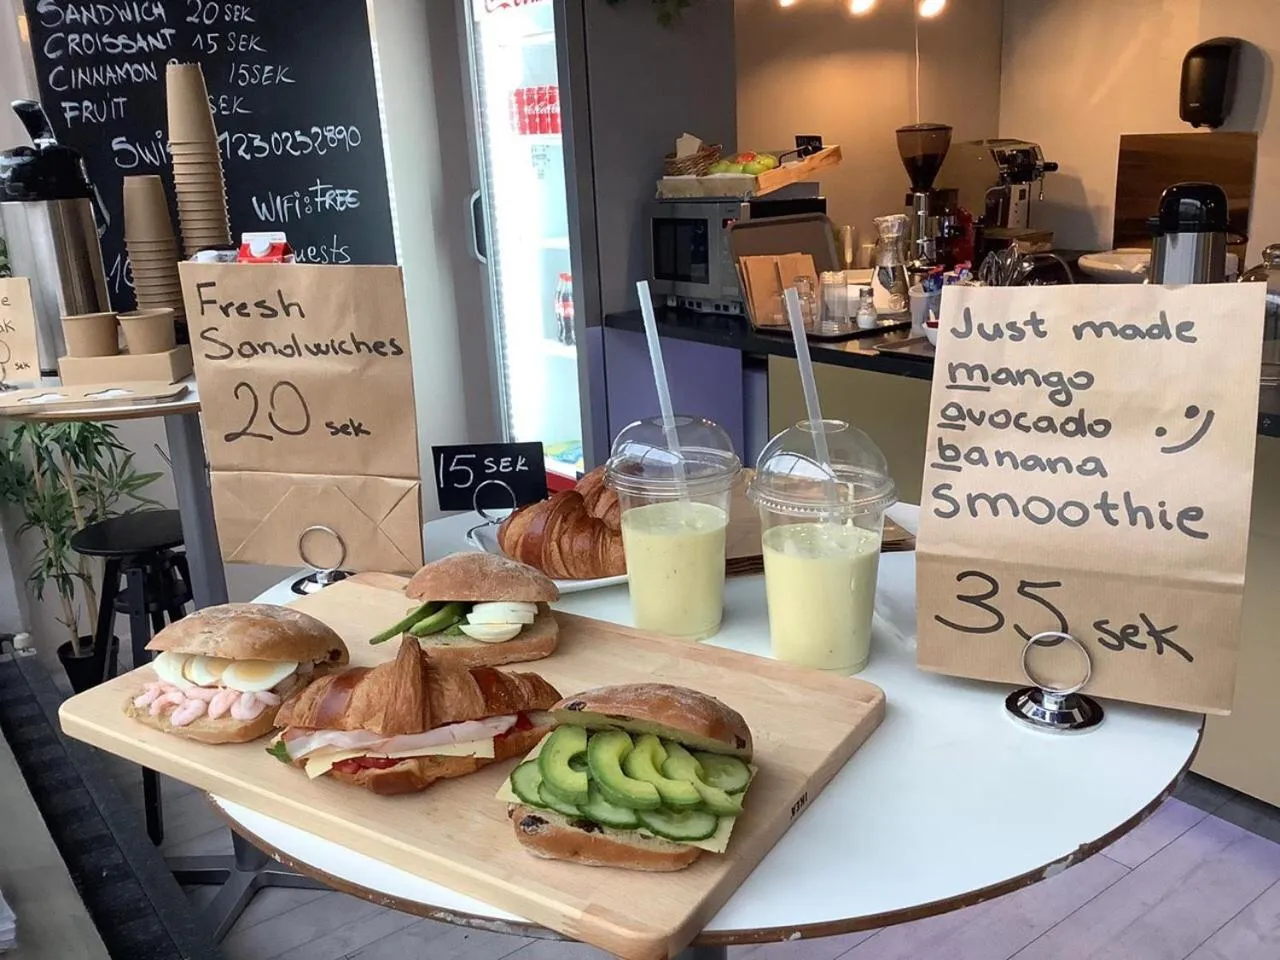 SANDWICH 20 SEK
CROISSANT 15 SEK
CINNAMON 15SEK
FRUIT SEK
1230252890
WiFi: FREE
Fresh
Sandwiches
20 sek
15 SEK
Just made
mango
avocado
banana
smoothie
35 sek
sek
IKEA